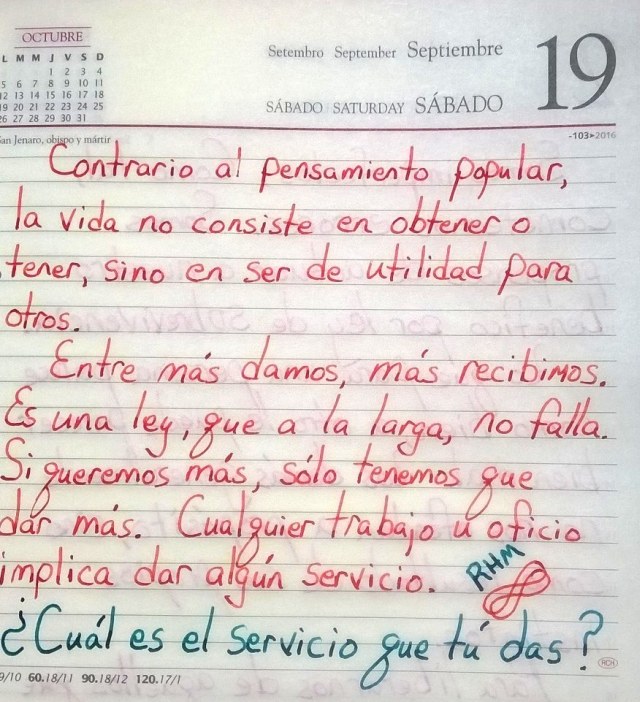 OCTUBRE
L M M J V S D
1 2 3 4
5 6 7 8 9 10 11
12 13 14 15 16 17 18
19 20 21 22 23 24 25
26 27 28 29 30 31
Setembro September Septiembre
SÁBADO SATURDAY SÁBADO
19
San Jenaro, obispo y mártir
-103▸2016
Contrario al pensamiento popular,
la vida no consiste en obtener o
tener, sino en ser de utilidad para
otros.
Entre más damos, más recibimos.
Es una ley, que a la larga, no falla.
Si queremos más, sólo tenemos que
dar más. Cualquier trabajo u oficio
implica dar algún servicio.
RHM
¿Cuál es el servicio que tú das?
9/10 60.18/11 90.18/12 120.17/1